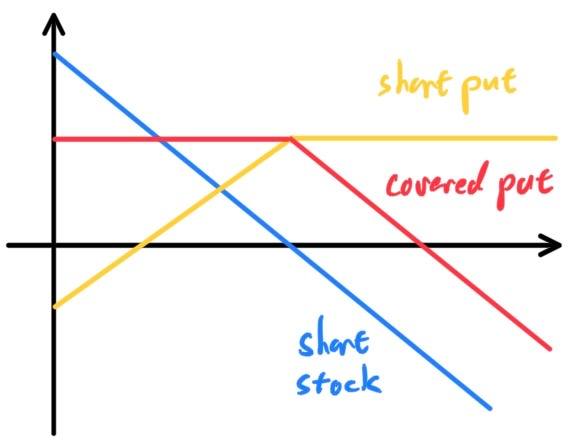 short put
covered put
short
stock